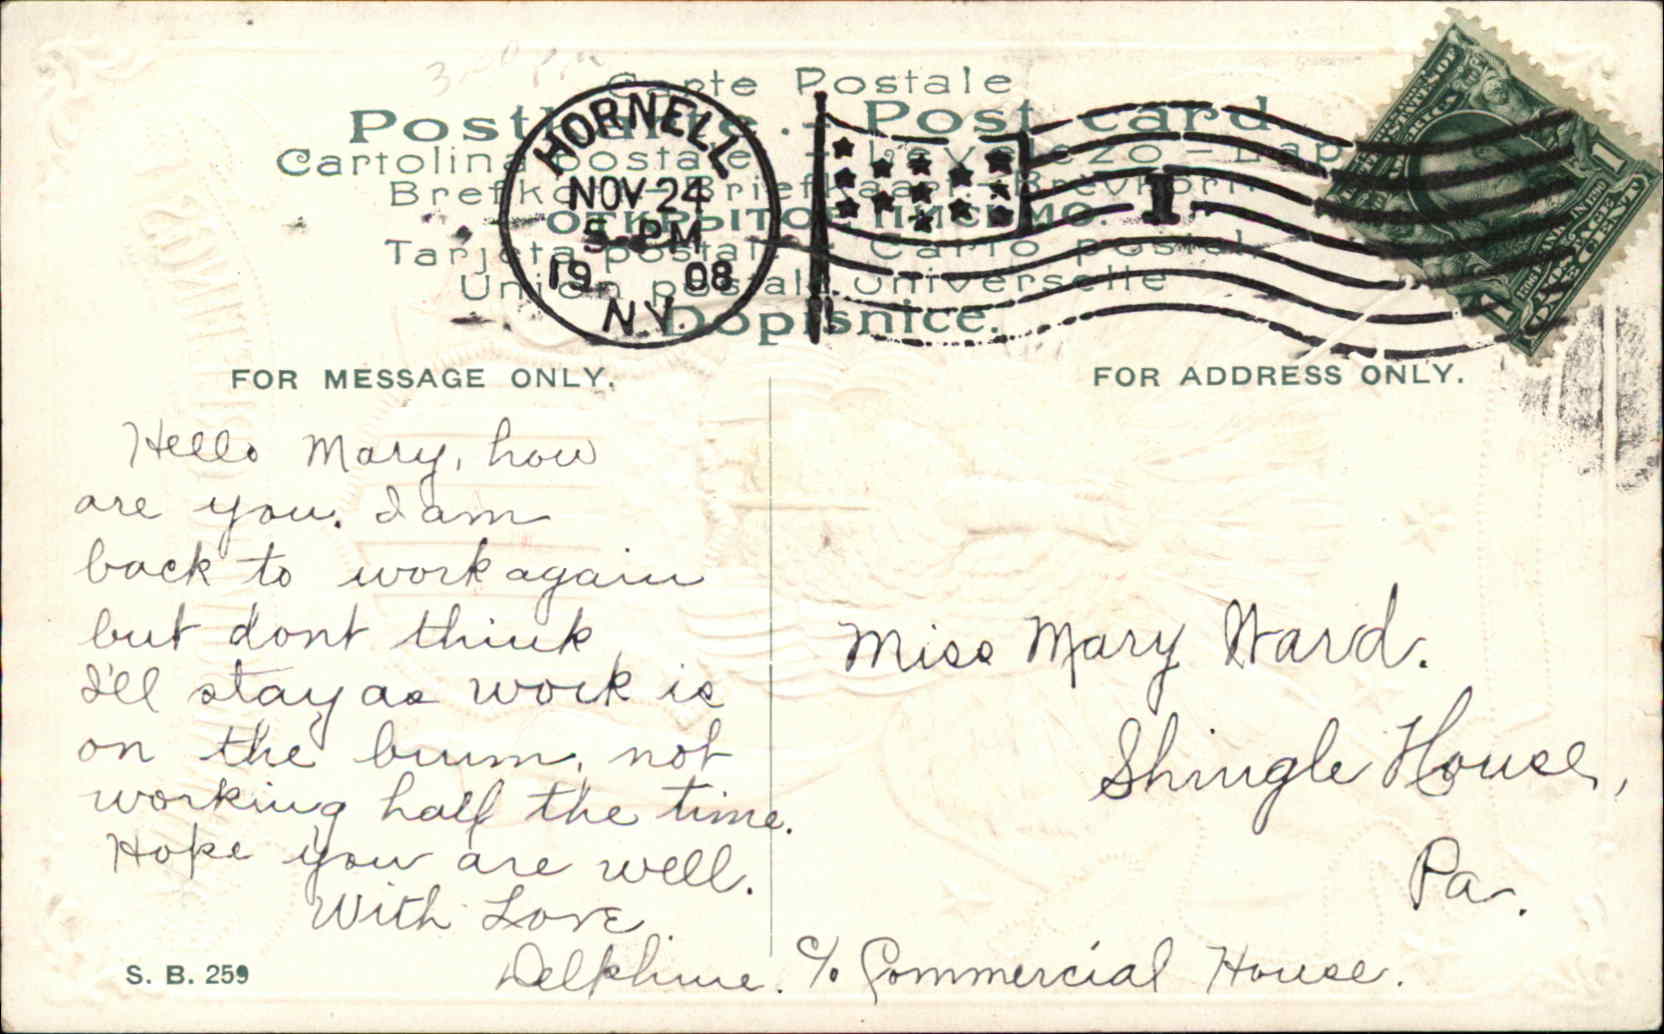 3-
Carte Postale
Postkarte. - Post card.
Cartolina postale - Levelezo - Lap
Brefkort - Briefkaart - Brevkort
ОТКРЫТОЕ ПИСЬМО.
Tarjeta postal - Carto postal.
Union postale universelle
Dopisnice.
HORNELL
NOV 24
5 - PM
19 08
N.Y.
1
1
1
ONE CENT
FOR MESSAGE ONLY.
FOR ADDRESS ONLY.
Hello Mary, how
are you. I am
back to work again
but dont think
I'll stay as work is
on the bum, not
working half the time.
Hope you are well.
With Love
Delphine.
Miss Mary Ward.
Shingle House,
Pa.
c/o Commercial House.
S. B. 259